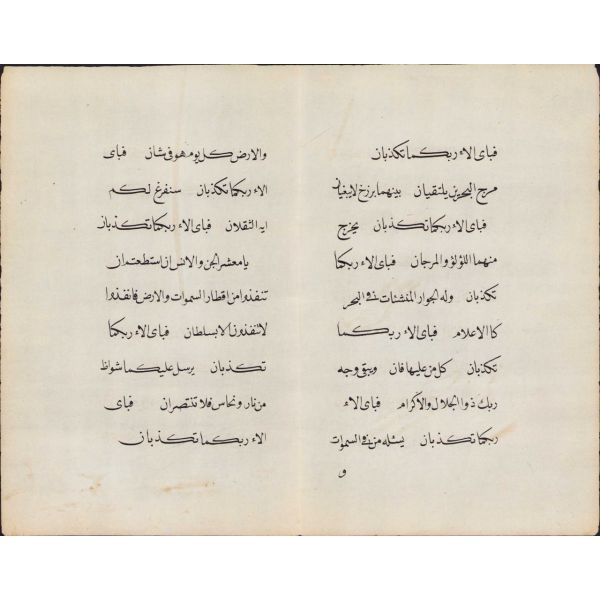 فباى الاء ربكما تكذبان
مرج البحرين يلتقيان بينهما برزخ لا يبغيان
فباى الاء ربكما تكذبان يخرج
منهما اللؤلؤ والمرجان فباى الاء ربكما
تكذبان وله الجوار المنشئات فى البحر
كالاعلام فباى الاء ربكما
تكذبان كل من عليها فان ويبقى وجه
ربك ذوا الجلال والاكرام فباى الاء
ربكما تكذبان يسئله من فى السموات
و
والارض كل يوم هو فى شان فباى
الاء ربكما تكذبان سنفرغ لكم
ايه الثقلان فباى الاء ربكما تكذبان
يا معشر الجن والانس ان استطعتم ان
تنفذوا من اقطار السموات والارض فانفذوا
لا تنفذون الا بسلطان فباى الاء ربكما
تكذبان يرسل عليكما شواظ
من نار ونحاس فلا تنتصران فباى
الاء ربكما تكذبان